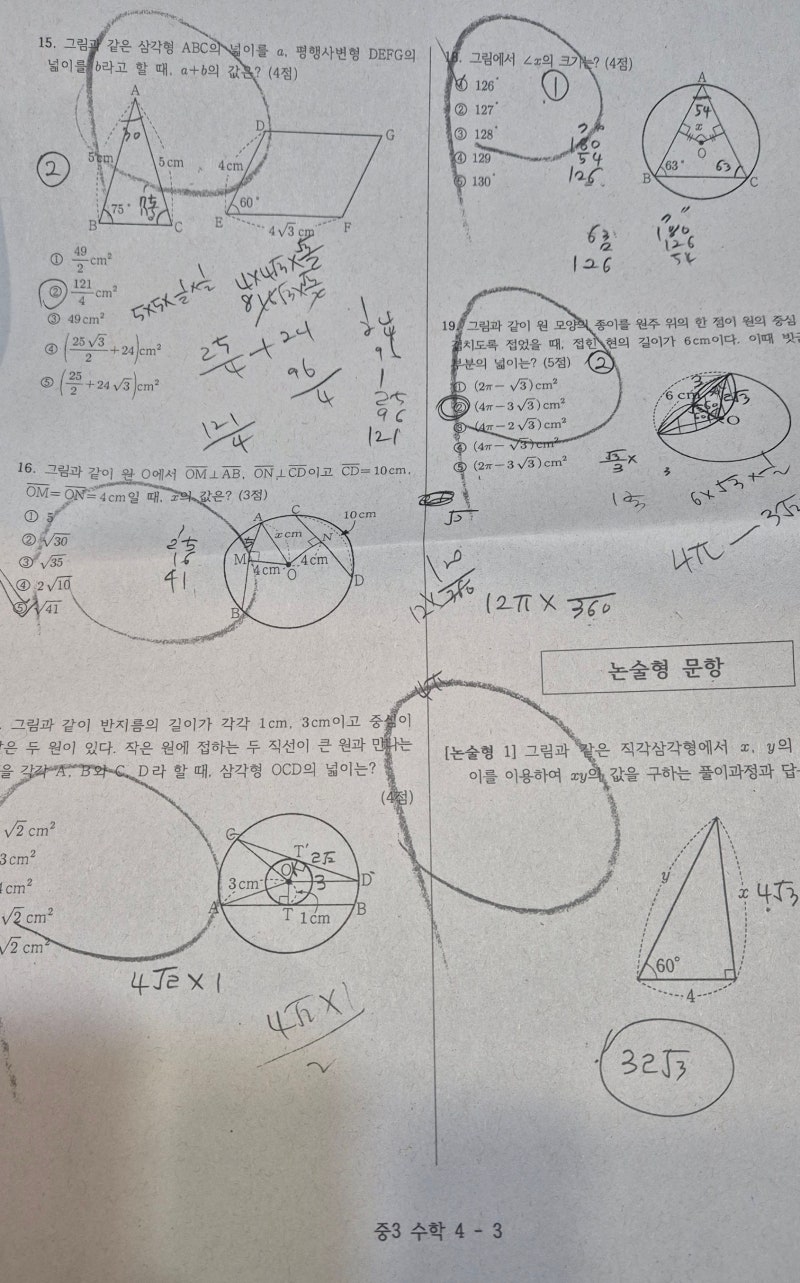 15. 그림과 같은 삼각형 ABC의 넓이를 a, 평행사변형 DEFG의
넓이를 b라고 할 때, a+b의 값은? (4점)
A
30
5cm
5cm
75°
B
C
D
G
4cm
60°
E
F
4√3 cm
②
① 49/2 cm²
② 121/4 cm²
③ 49cm²
④ (25√3/2 + 24)cm²
⑤ (25/2 + 24√3)cm²
5×5×1/2×1/2
4×4√3×√3/2
25/4 + 24
96/4
121/4
24
4
96
1
25
96
121
16. 그림과 같이 원 O에서 OM⊥AB, ON⊥CD이고 CD=10cm,
OM=ON=4cm일 때, x의 값은? (3점)
① 5
② √30
③ √35
④ 2√10
⑤ √41
25
16
41
A
C
10cm
xcm
5
N
M
4cm
O
4cm
D
B
그림과 같이 반지름의 길이가 각각 1cm, 3cm이고 중심이
은 두 원이 있다. 작은 원에 접하는 두 직선이 큰 원과 만나는
을 각각 A, B와 C, D라 할 때, 삼각형 OCD의 넓이는?
(4점)
√2 cm²
3cm²
cm²
√2 cm²
√2 cm²
C
T'
2√2
O
3cm
3
D
A
T
1cm
B
4√2 × 1
4√2 × 1
2
18. 그림에서 ∠x의 크기는? (4점)
① 126°
② 127°
③ 128°
④ 129
⑤ 130°
①
180
54
126
A
54
x
O
63°
63
B
C
63
2
126
180
126
54
19. 그림과 같이 원 모양의 종이를 원주 위의 한 점이 원의 중심
겹치도록 접었을 때, 접힌 현의 길이가 6cm이다. 이때 빗금
부분의 넓이는? (5점)
②
① (2π−√3)cm²
② (4π−3√3)cm²
③ (4π−2√3)cm²
④ (4π−√3)cm²
⑤ (2π−3√3)cm²
3
6 cm
2√3
O
√3
6×√3×1/2
4π − 3√3
12× 120/360
12π × 360
4π
논술형 문항
[논술형 1] 그림과 같은 직각삼각형에서 x, y의
이를 이용하여 xy의 값을 구하는 풀이과정과 답
y
x
4√3
60°
4
32√3
중3 수학 4 - 3